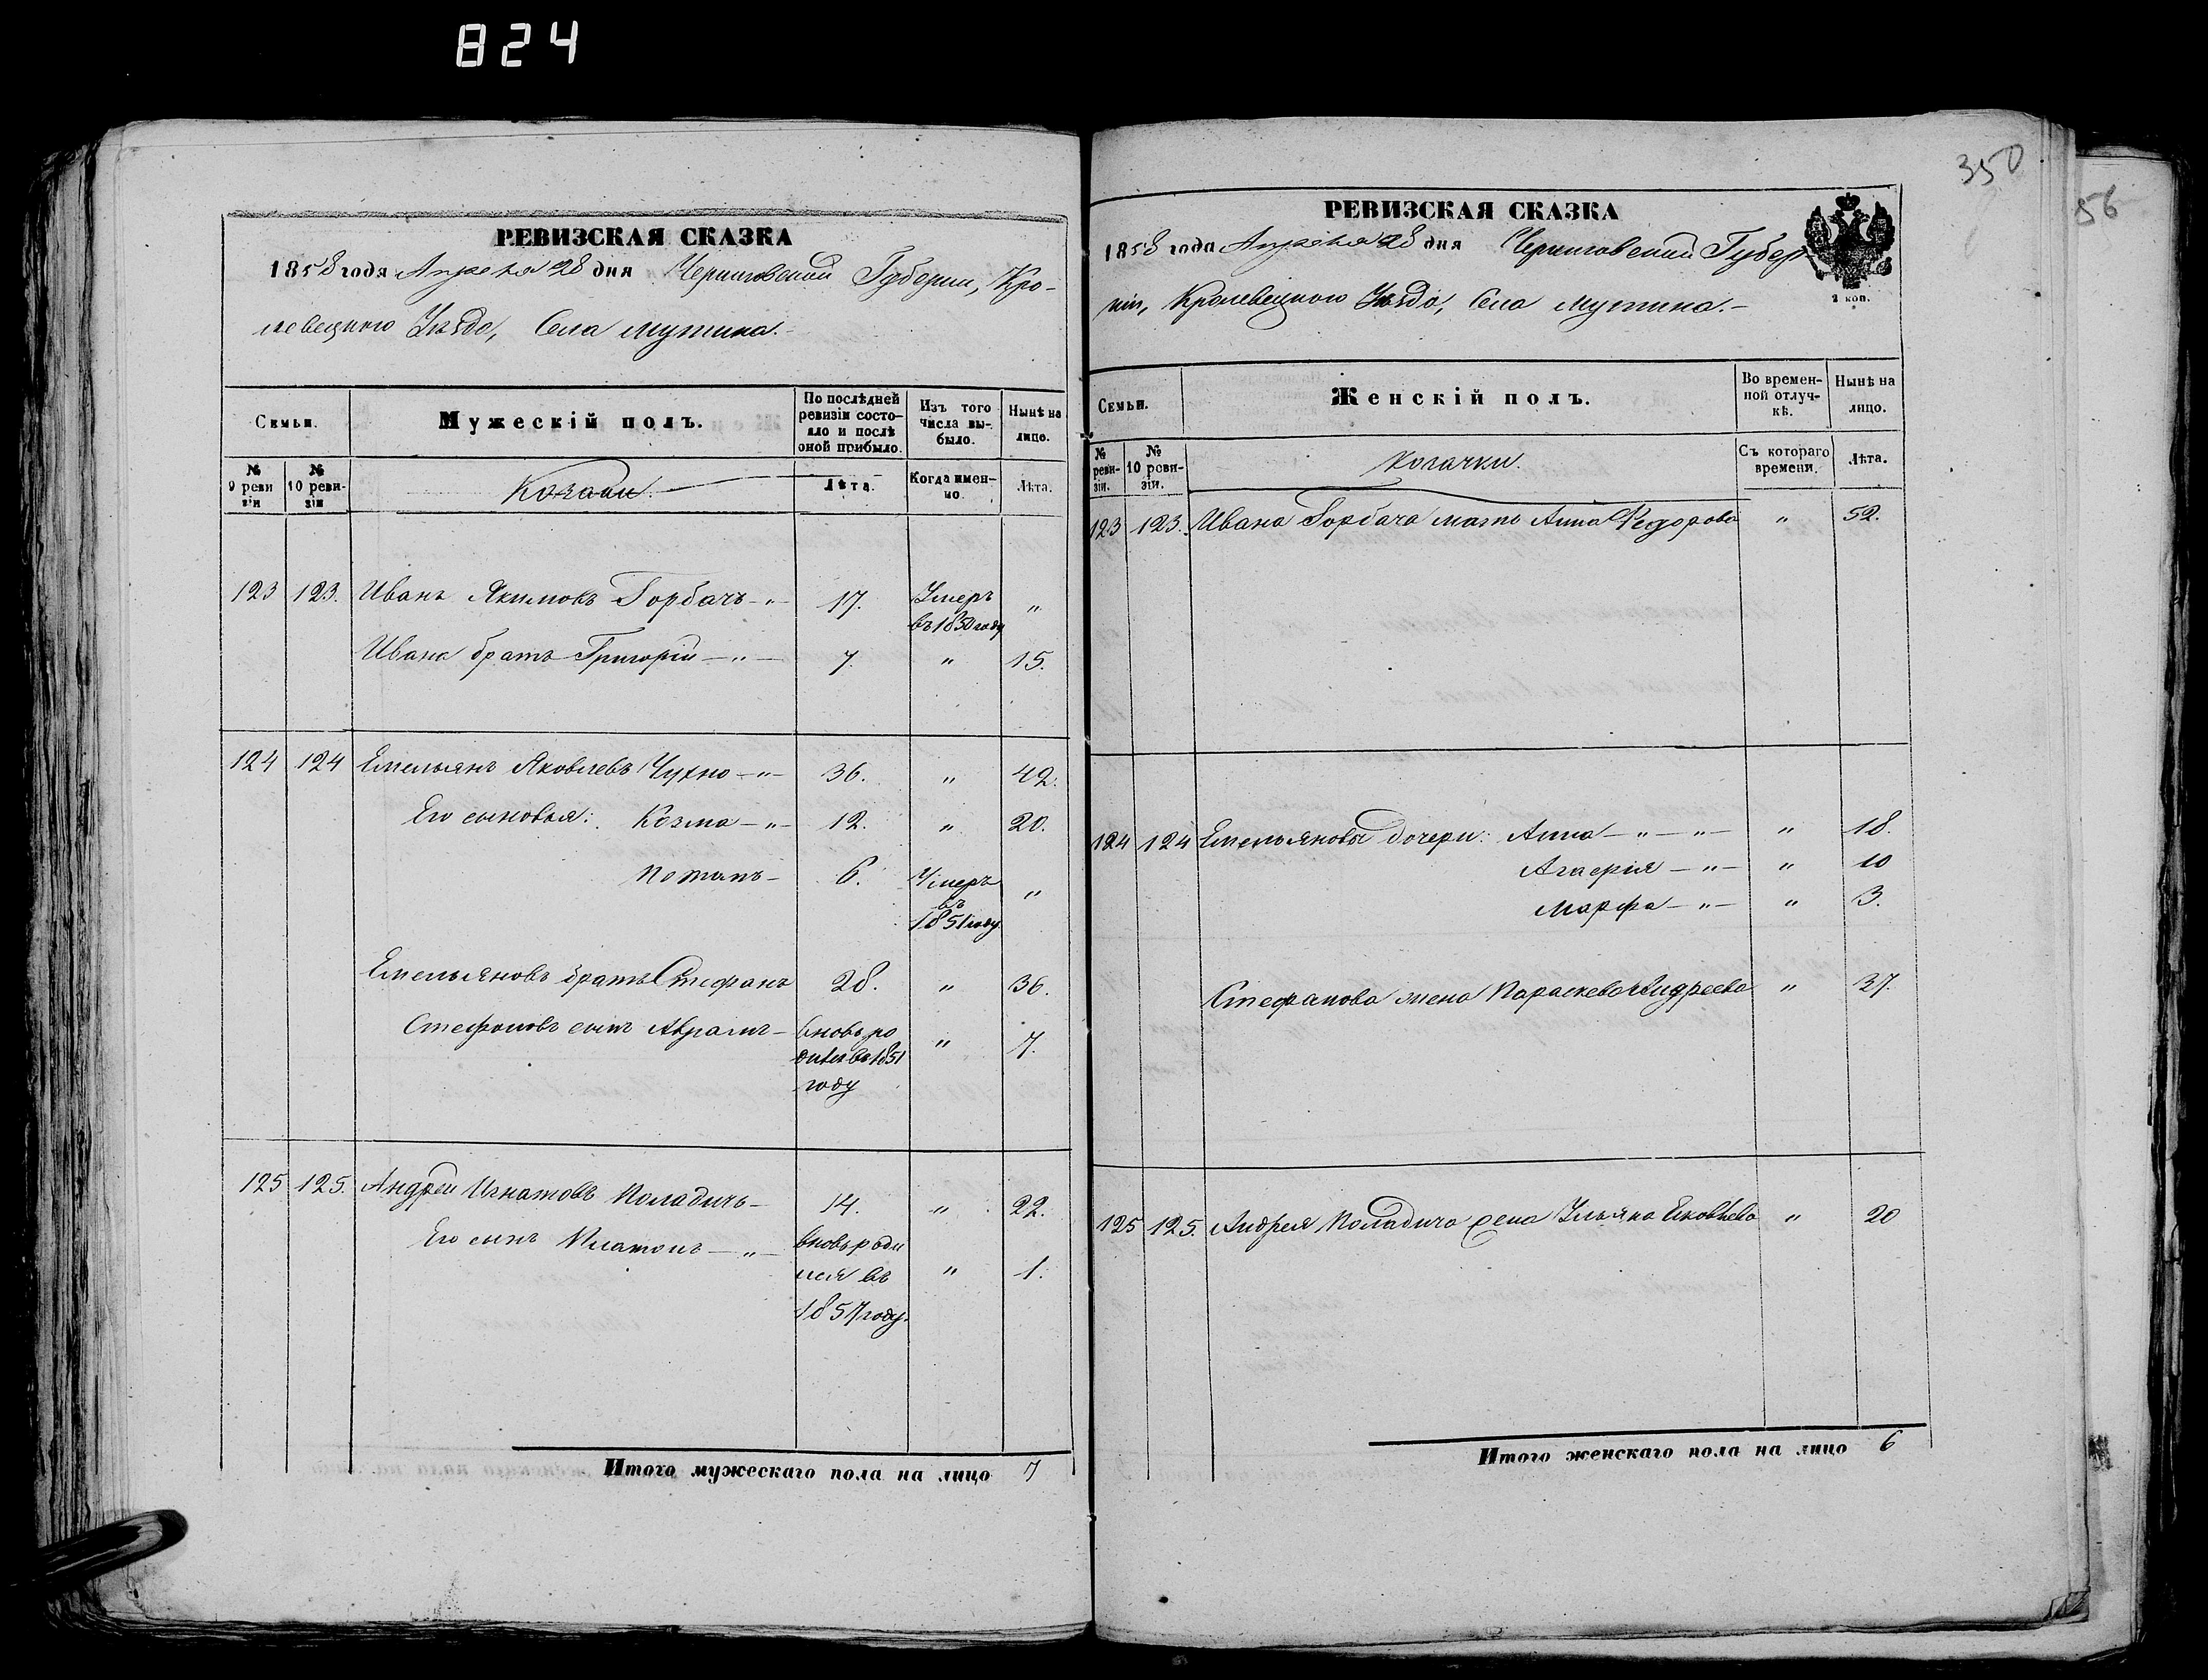 824
350
56
РЕВИЗСКАЯ СКАЗКА
1858 года Апреля 28 дня Черниговской Губернии, Кро-
левецкого Уѣзда, Села Мутина.-
Семьи.
Мужескій полъ.
По послѣдней
ревизіи состо-
яло и послѣ
оной прибыло.
Изъ того
числа вы-
было.
Нынѣ на
лицо.
№
9 реви
зіи
№
10 реви-
зіи
Козаки.
Лѣта.
Когда имен-
но.
Лѣта.
123 123. Иванъ Якимовъ Горбачъ-"- 17. Умеръ "
въ 1850 году
Ивана братъ Григорій-"- 7. " 15.
124 124 Емельянъ Яковлевъ Чухно-"- 36. " 42.
Его сыновья: Козма-"- 12. " 20.
Потапъ- 6. Умеръ "
въ
1851 году
Емельяновъ братъ Стефанъ 28. " 36.
Стефановъ сынъ Авраамъ- вновь ро " 7.
дился въ 1851
году
125 125. Андрей Игнатовъ Поладичъ- 14. " 22.
Его сынъ Платонъ-"- вновь роди
лся въ " 1.
1857 году.
Итого мужескаго пола на лицо 7
РЕВИЗСКАЯ СКАЗКА
1858 года Апреля 28 дня Черниговской Губер-
ніи, Кролевецкого Уѣзда, Села Мутина.-
2 коп.
Семьи.
Женскій полъ.
Во времен-
ной отлуч-
кѣ.
Нынѣ на
лицо.
№
реви-
зіи.
№
10 реви-
зіи.
Козачки.
Съ котораго
времени.
Лѣта.
123 123. Ивана Горбача мать Анна Федорова " 52.
124 124 Емельяновы дочери: Анна-"-"- " 18.
Агафія-"- " 10
Марфа-"- " 3.
Стефанова жена Параскева Андреева " 37.
125 125. Андрея Поладича жена Ульяна Яковлева " 20
Итого женскаго пола на лицо 6